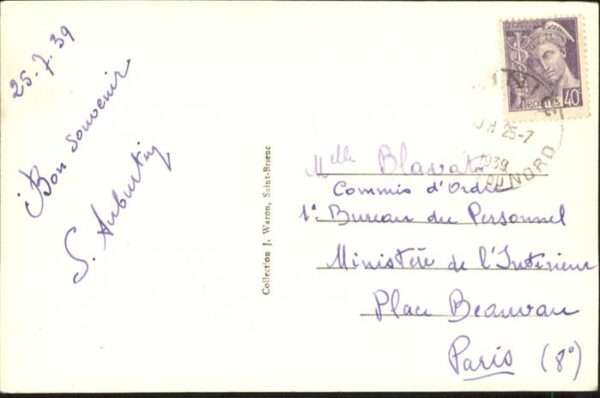 25-7-39
Bon souvenir
S.
Collection J. Waron, Saint-Brieuc
POSTES 40
25-7
1939
DU NORD
Melle
Commis d'Ordre
1º Bureau du Personnel
Ministère de l'Intérieur
Place Beauvau
Paris (8º)